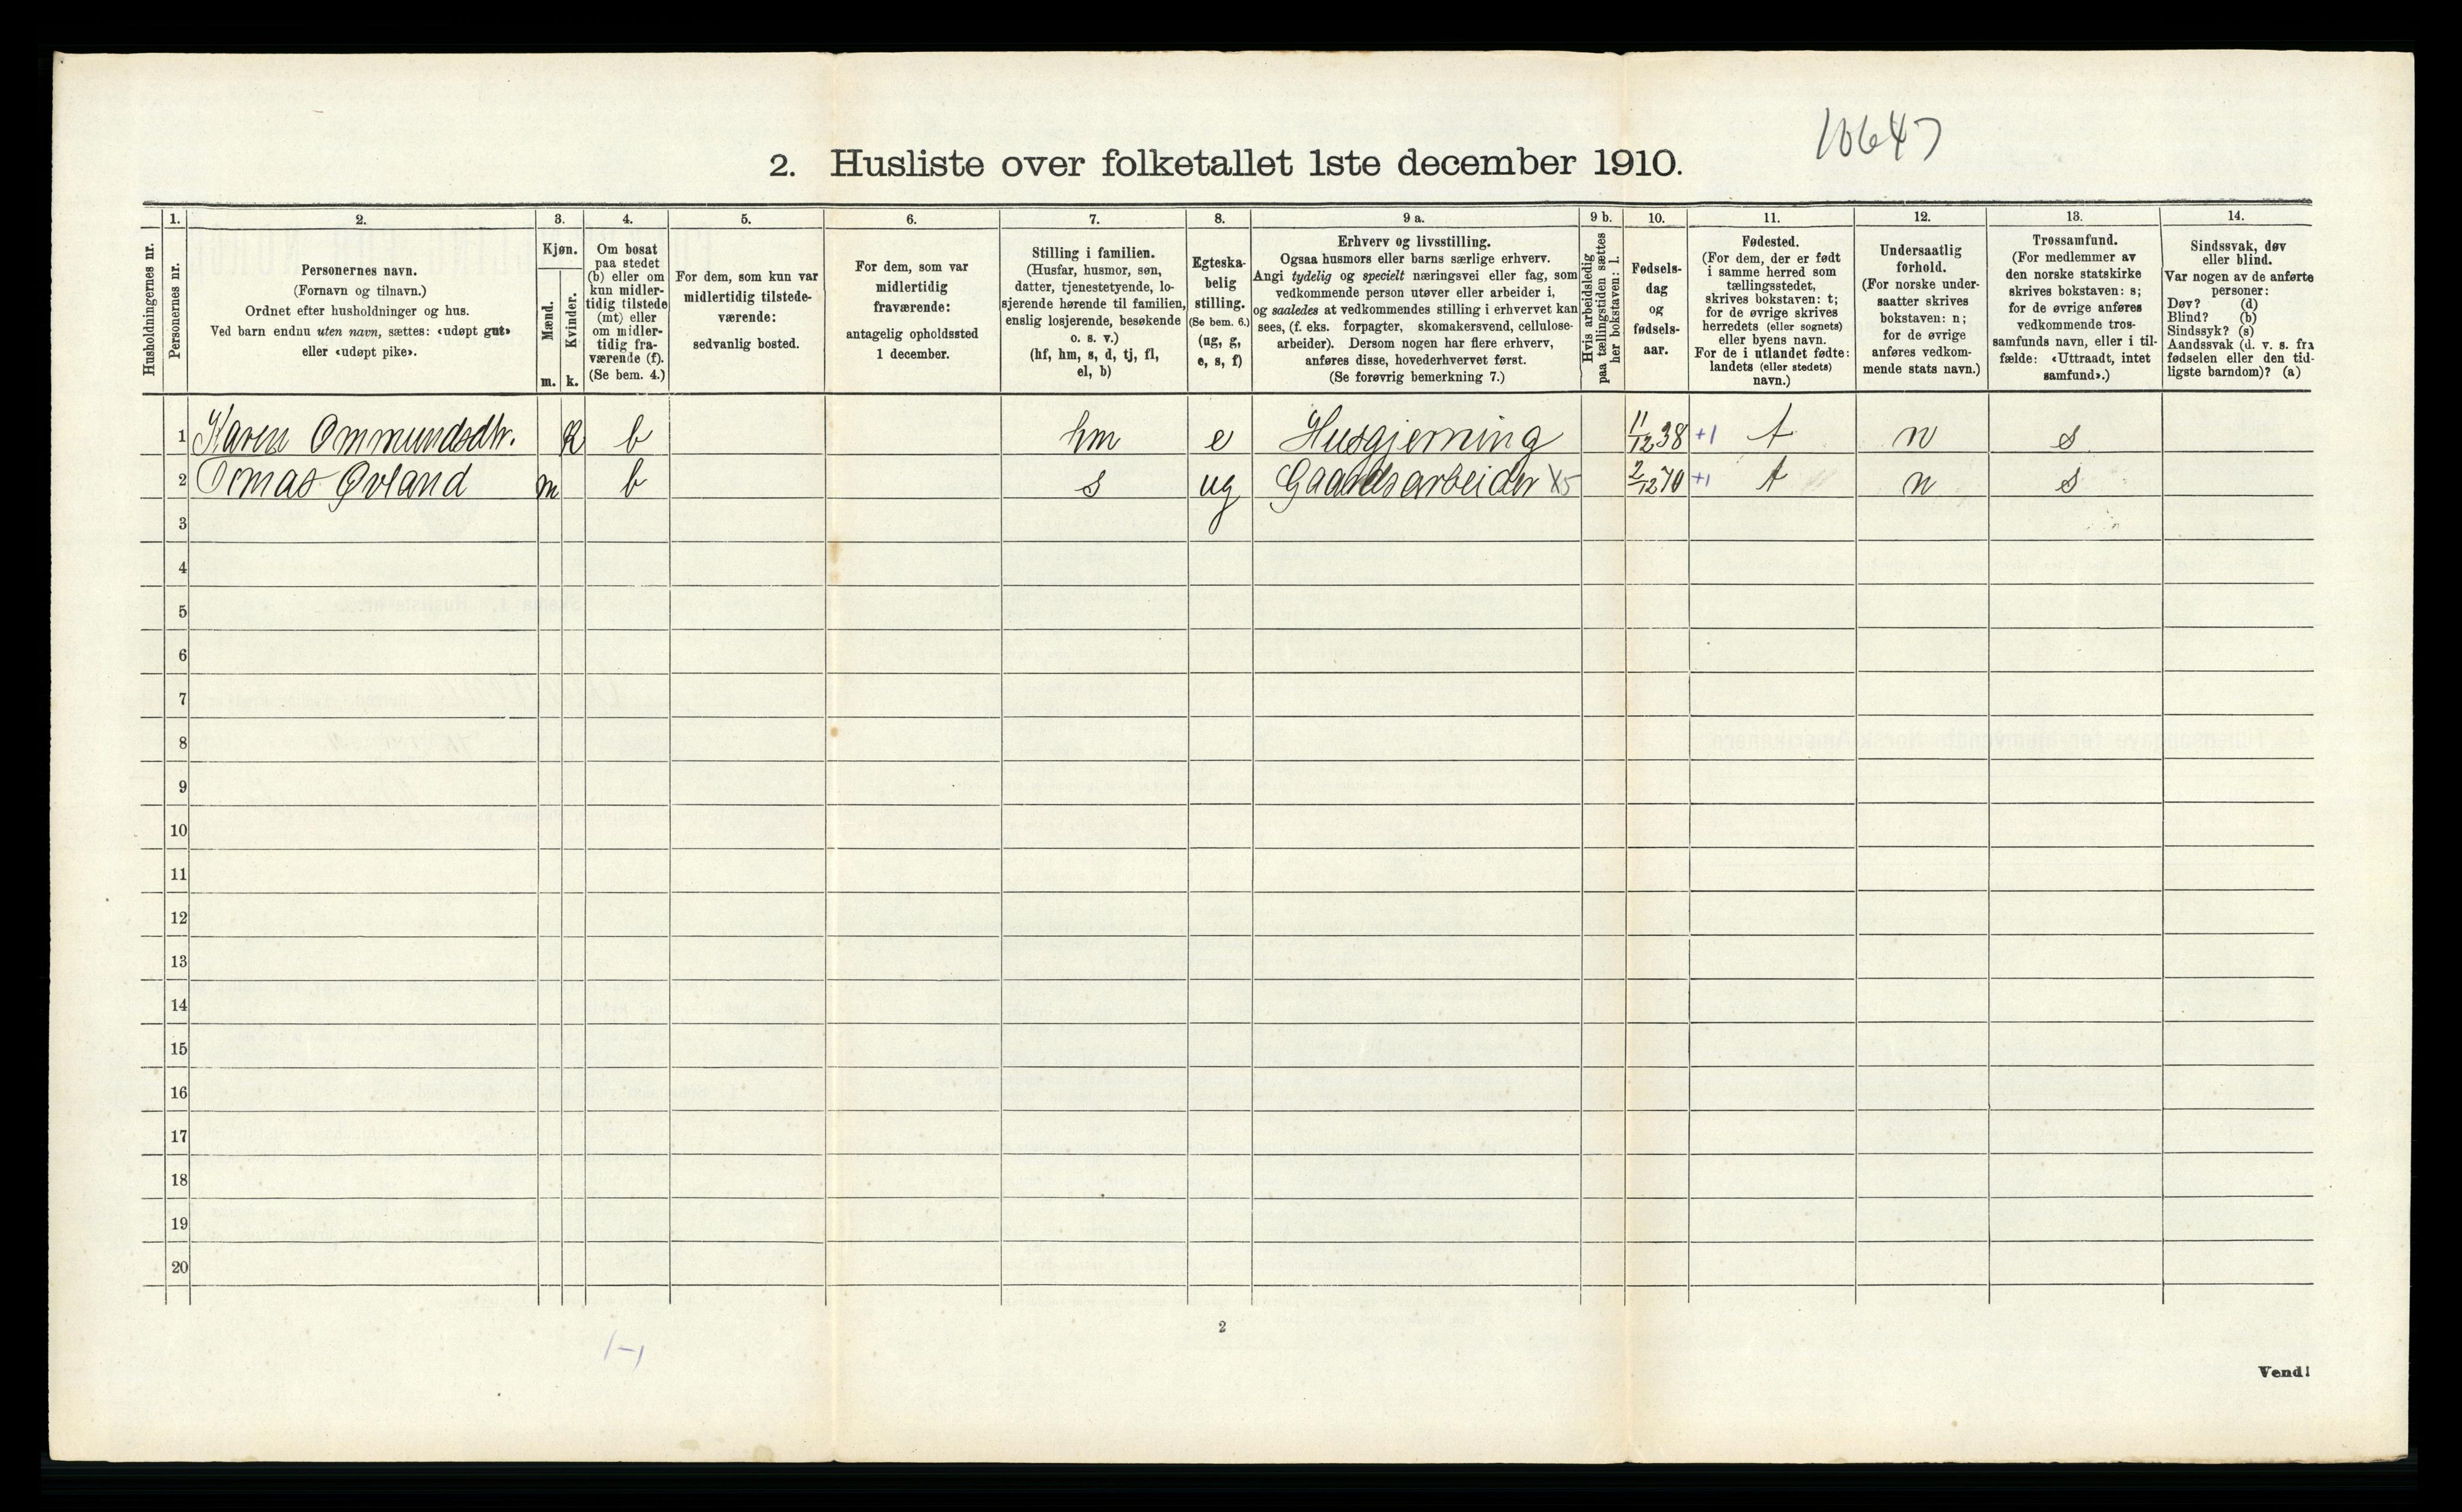 10647
2. Husliste over folketallet 1ste december 1910.
1. 2. 3. 4. 5. 6. 7. 8. 9 a. 9 b. 10. 11. 12. 13. 14.
Husholdningernes nr.
Personernes nr.
Personernes navn.
(Fornavn og tilnavn.)
Ordnet efter husholdninger og hus.
Ved barn endnu uten navn, sættes: «udøpt gut»
eller «udøpt pike».
Kjøn.
Mænd.
Kvinder.
m. k.
Om bosat
paa stedet
(b) eller om
kun midler-
tidig tilstede
(mt) eller
om midler-
tidig fra-
værende (f).
(Se bem. 4.)
For dem, som kun var
midlertidig tilstede-
værende:
sedvanlig bosted.
For dem, som var
midlertidig
fraværende:
antagelig opholdssted
1 december.
Stilling i familien.
(Husfar, husmor, søn,
datter, tjenestetyende, lo-
sjerende hørende til familien,
enslig losjerende, besøkende
o. s. v.)
(hf, hm, s, d, tj, fl,
el, b)
Egteska-
belig
stilling.
(Se bem. 6.)
(ug, g,
e, s, f)
Erhverv og livsstilling.
Ogsaa husmors eller barns særlige erhverv.
Angi tydelig og specielt næringsvei eller fag, som
vedkommende person utøver eller arbeider i,
og saaledes at vedkommendes stilling i erhvervet kan
sees, (f. eks. forpagter, skomakersvend, cellulose-
arbeider). Dersom nogen har flere erhverv,
anføres disse, hovederhvervet først.
(Se forøvrig bemerkning 7.)
Hvis arbeidsledig
paa tællingstiden sættes
her bokstaven: l.
Fødsels-
dag
og
fødsels-
aar.
Fødested.
(For dem, der er født
i samme herred som
tællingsstedet,
skrives bokstaven: t;
for de øvrige skrives
herredets (eller sognets)
eller byens navn.
For de i utlandet fødte:
landets (eller stedets)
navn.)
Undersaatlig
forhold.
(For norske under-
saatter skrives
bokstaven: n;
for de øvrige
anføres vedkom-
mende stats navn.)
Trossamfund.
(For medlemmer av
den norske statskirke
skrives bokstaven: s;
for de øvrige anføres
vedkommende tros-
samfunds navn, eller i til-
fælde: «Uttraadt, intet
samfund».)
Sindssvak, døv
eller blind.
Var nogen av de anførte
personer:
Døv? (d)
Blind? (b)
Sindssyk? (s)
Aandssvak (d. v. s. fra
fødselen eller den tid-
ligste barndom)? (a)
1 Karen Ommundsdtr. k b hm e Husgjerning 11/12 38 +1 t n s
2 Tomas Øvland m b s ug Gaardsarbeider X5 2/12 70 +1 t n s
3
4
5
6
7
8
9
10
11
12
13
14
15
16
17
18
19
20
2
1-1
Vend!